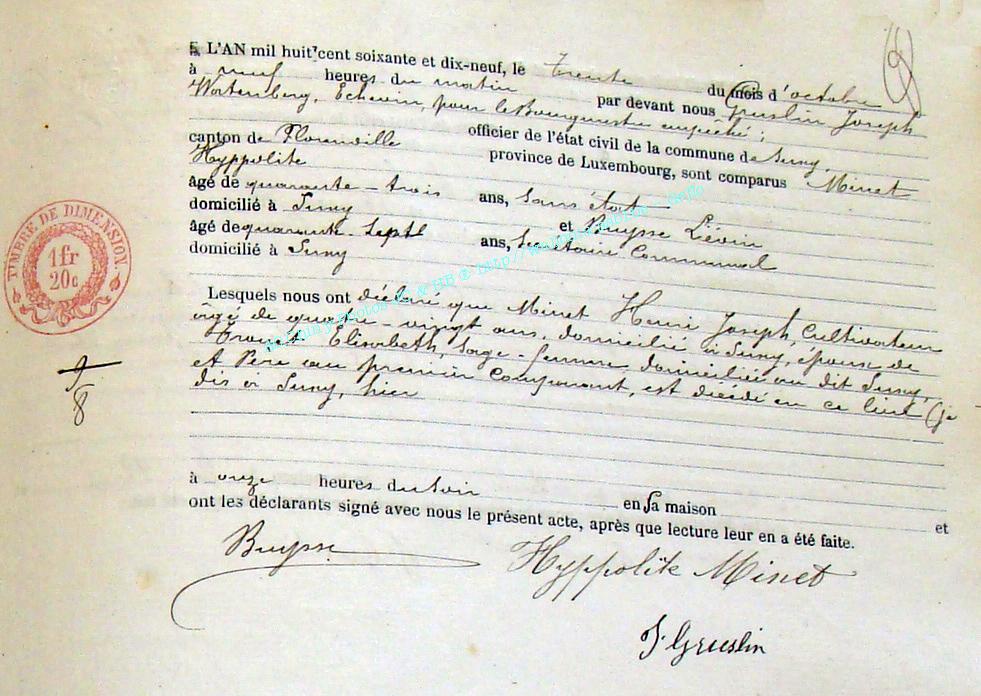 L'AN mil huit cent soixante et dix-neuf, le trente du mois d'octobre
à neuf heures du matin par devant nous Gruslin Joseph
Wartenberg, Echevin, pour le Bourgmestre empêché;
officier de l'état civil de la commune de Suny
canton de Florenville province de Luxembourg, sont comparus Minet
Hyppolite
âgé de quarante-trois ans, sans état
domicilié à Suny et Buysse Liévin
âgé de quarante-sept ans, Secrétaire Communal
domicilié à Suny
Lesquels nous ont déclaré que Minet Henri Joseph, Cultivateur
âgé de quatre-vingt ans, domicilié à Suny, époux de
Elisabeth, Sage-femme, domiciliée au dit Suny,
et Père au premier Comparant, est décédé en ce lieu (je
dis à Suny, hier
à onze heures du soir en sa maison et
ont les déclarants signé avec nous le présent acte, après que lecture leur en a été faite.
Buysse
Hyppolite Minet
J. Gruslin
TIMBRE DE DIMENSION.
1 fr
20 c
9
8